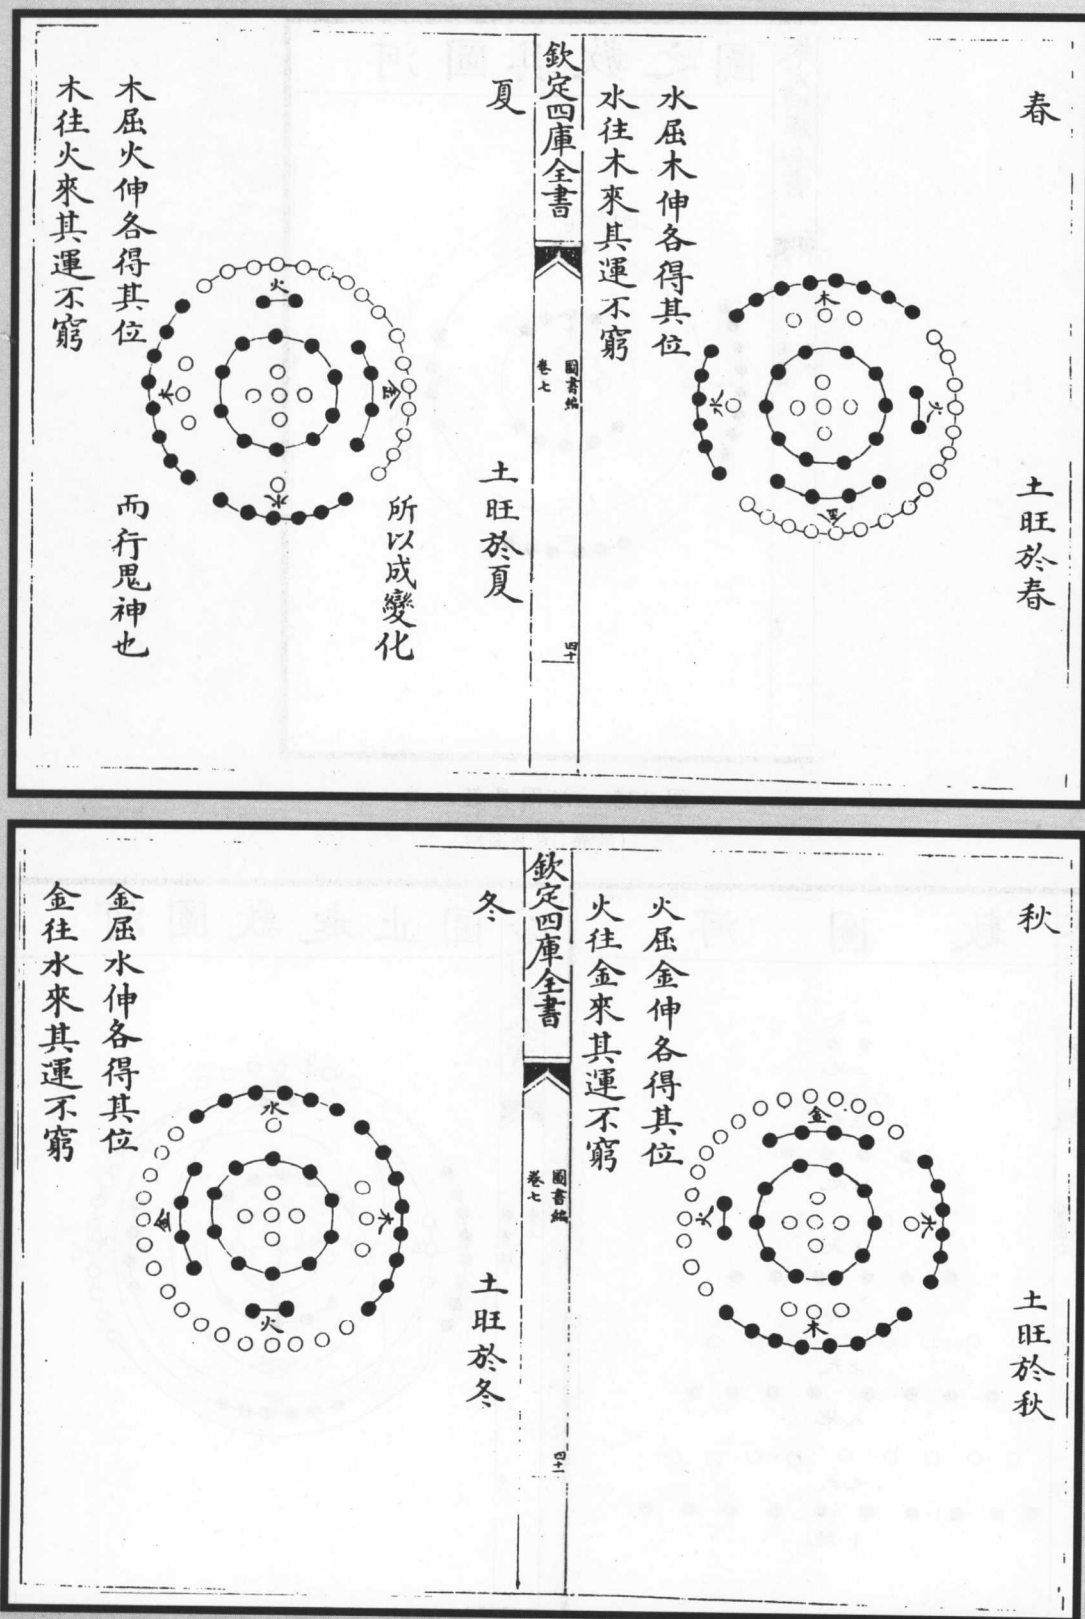 春
土旺於春
木
火
金
水
水屈木伸各得其位
水往木來其運不窮
欽定四庫全書
圖書編
卷七
四十
夏
土旺於夏
火
金
水
木
所以成變化
木屈火伸各得其位
而行鬼神也
木往火來其運不窮
秋
土旺於秋
金
水
木
火
火屈金伸各得其位
火往金來其運不窮
欽定四庫全書
圖書編
卷七
四十一
冬
土旺於冬
水
木
火
金
金屈水伸各得其位
金往水來其運不窮